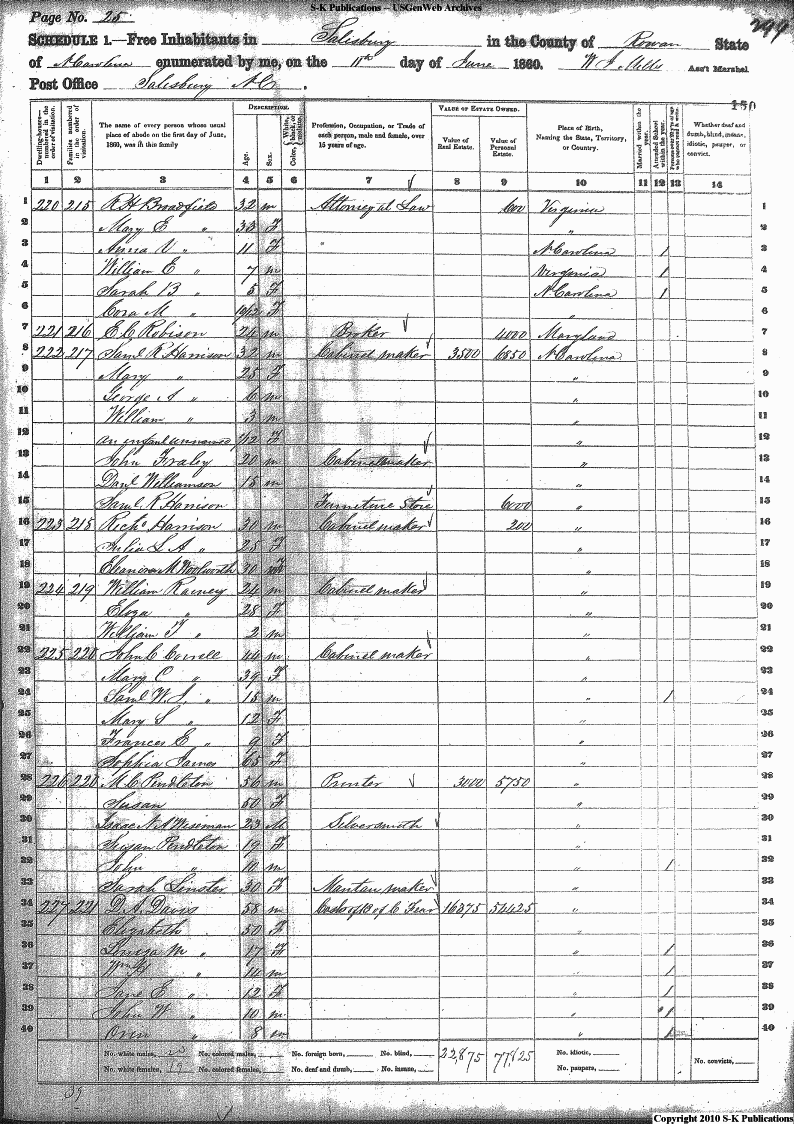 S-K Publications -- USGenWeb Archives
Page No. 25
299
SCHEDULE 1.—Free Inhabitants in Salisbury in the County of Rowan State
of N Carolina enumerated by me, on the 11th day of June 1860. Ass't Marshal
Post Office Salisbury N C.
150
DESCRIPTION. VALUE OF ESTATE OWNED.
Dwelling-houses—numbered in the order of visitation. Families numbered in the order of visitation. The name of every person whose usual place of abode on the first day of June, 1860, was in this family Age. Sex. Color, White, black, or mulatto. Profession, Occupation, or Trade of each person, male and female, over 15 years of age. Value of Real Estate. Value of Personal Estate. Place of Birth, Naming the State, Territory, or Country. Married within the year. Attended School within the year. Whether deaf and dumb, blind, insane, idiotic, pauper, or convict.
1 2 3 4 5 6 7 8 9 10 11 12 13 14
1 220 215 R H Broadfield 32 m Attorney at Law 600 Virginia 1
2 Mary E " 33 F " 2
3 Anna V " 11 F " N Carolina / 3
4 William E " 7 m Virginia / 4
5 Sarah B " 5 F N Carolina / 5
6 Cora M " 10/12 F " 6
7 221 216 E C Robison 24 m Broker 4000 Maryland 7
8 222 217 Saml R Harrison 32 m Cabinet maker 3500 6850 N Carolina 8
9 Mary " 25 F " 9
10 George A " 6 m " 10
11 William " 3 m " 11
12 an infant unnamed /12 F " 12
13 John Fraley 20 m Cabinet maker " 13
14 Danl Williamson 18 m " 14
15 Saml R Harrison Furniture Store 6000 " 15
16 223 218 Richd Harrison 30 m Cabinet maker 200 " 16
17 Julia L A " 25 F " 17
18 Eleanora M Woolworth 30 F " 18
19 224 219 William Rainey 24 m Cabinet maker " 19
20 Eliza " 28 F " 20
21 William F " 2 m " 21
22 225 220 John C Correll 44 m Cabinet maker " 22
23 Mary C " 39 F " 23
24 Saml W J " 15 m " / 24
25 Mary S " 12 F " 25
26 Frances E " 9 F " 26
27 Sophia James 65 F " 27
28 226 220 M C Pendleton 56 m Printer 3000 5750 " 28
29 Susan 50 F " 29
30 Isaac N A Wiseman 23 M Silversmith " 30
31 Susan Pendleton 19 F " 31
32 John " 10 m " / 32
33 Sarah Linster 30 F Mantau maker " 33
34 227 221 D. A. Davis 58 m Cash of B of C Fear 16375 54425 " 34
35 Elizabeth 50 F " 35
36 Louiza M " 17 F " / 36
37 " 14 m " / 37
38 Jane E " 12 F " / 38
39 John W " 10 m " / 39
40 Oren " 8 m " / 40
No. white males, 20 No. colored males, No. foreign born, No. blind, 22,875 77,825 No. idiotic,
No. white females, 19 No. colored females, No. deaf and dumb, No. insane, No. paupers, No. convicts,
39
Copyright 2010 S-K Publications